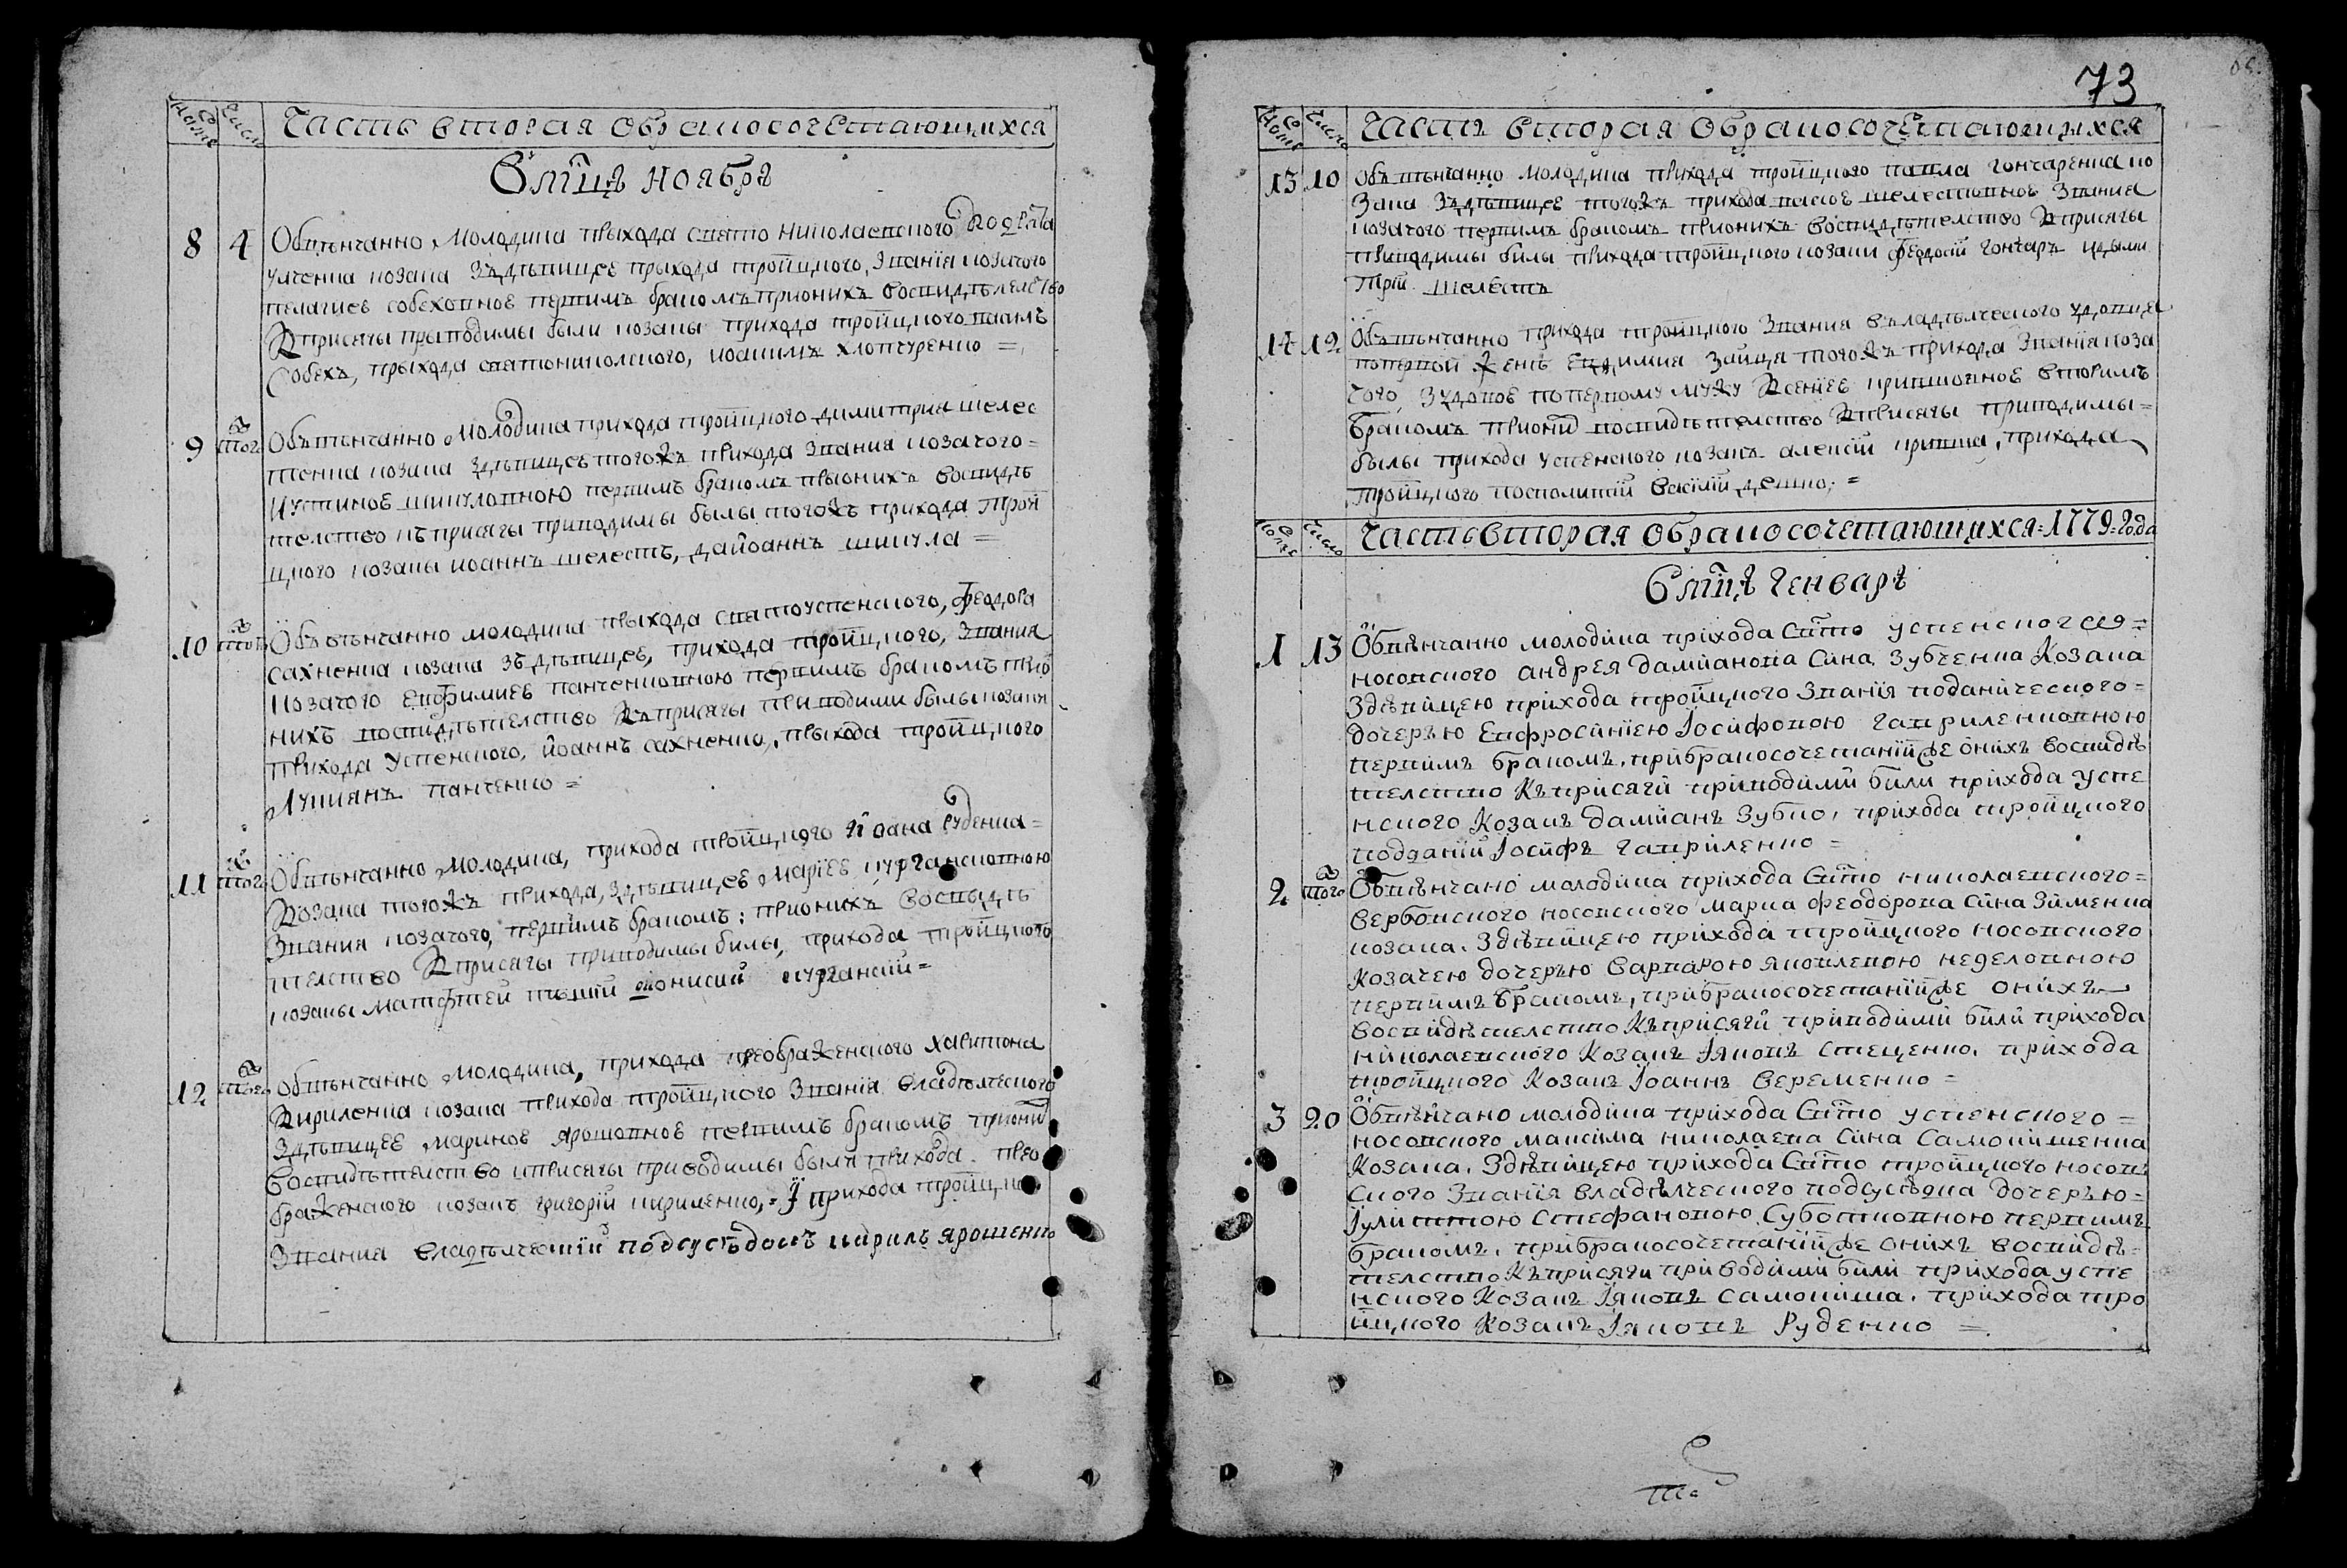 Часть вторая Обракосочетающихся
Вмц̃ѣ ноябрѣ
8 4 Обвѣнчанно молодика прыхода свято николаевского
козака Зъдѣвицею прыхода тройцкого, Званія козачого
пелагиею собеховною первимъ бракомъ прионихъ восвидѣтелство
Кприсяги приводимы были козаки прихода тройцкого павелъ
Собехъ, прыхода святониколского, иоакимъ хлопчуренко =
9 того Обвѣнчанно молодика прихода тройцкого димитрия шелес
тенка козака Здѣвицею тогожъ прихода Звания козачого =
Иустиною шикуловною первимъ бракомъ прионихъ восвидѣ
телство къприсяги приводимы былы тогожъ прихода трой
цкого козаки иоаннъ шелестъ, даиоаннъ шикула =
10 того Объвѣнчанно молодика прыхода святоуспенского, Феодора
сахненка козака зъдѣвицею, прихода тройцкого, Звания
козачого Евфимиею панченковною первимъ бракомъ прио
нихъ восвидѣтелство Къприсяги приводими былы козаки
прихода успенского, иоаннъ сахненко, прыхода тройцкого
Лукиянъ панченко =
11 того Обвѣнчанно молодика, прихода тройцкого Иоана Руденка =
Козака тогожъ прихода, здѣвицею мариею кургансковною
Звания козачого, первимъ бракомъ: прионихъ восвыдѣ
телство Кприсяги приводимы билы, прихода тройцкого
козакы матфтей дионисий курганский =
12 того Обвѣнчанно молодика, прихода преображенского харитона
Кириленка козака прихода тройцкого Званія владѣлческого
Здѣвицею мариною ярошовною первимъ бракомъ приони
Восвидѣтелство кприсяги приводимы были прихода прео
браженского козакъ григорій кириленко, = И прихода тройцко
Звания владѣлческий подсусѣдокъ кирилъ ярошенко
73
Часть вторая Обракосочетающихся
13 10 Объвѣнчанно молодика прихода тройцкого павла гончаренка ко
Зака Здѣвицею тогожъ прихода шелестовною Звания
козачого первимъ бракомъ прионихъ восвидѣтелство Кприсяги
приводимы билы прихода тройцкого козаки феодосій гончаръ идыми
трій шелестъ
14 12 Объвѣнчанно прихода тройцкого Звания въладѣлческого удовца
попервой женѣ Евдимия Зайца тогожъ прихода Званія коза
чого Зудовою попервому мужу Ксениею кришовною вторимъ
бракомъ приони восвидѣтелство Кприсягы приводимы =
былы прихода успенского козакъ алексій криша, прихода
тройцкого посполитий василій дешко, =
Часть вторая обракосочетающихся = 1779 = Года
Вмц̃ѣ генварѣ
1 13 Обвѣнчанно молодика прихода Свято успенского =
носовского андрея дамианова Сина Зубченка Козака
Здѣвицею прихода тройцкого Званія поданического =
дочерью Евфросиніею Іосифовою гавриленковною
первимъ бракомъ, прибракосочетанійже онихъ восвидѣ
телство Къприсяги приводими били прихода успе
нского Козакъ даміанъ Зубко, прихода тройцкого
подданій Іосифъ гавриленко =
2 того Обвѣнчано молодика прихода Свято николаевского =
вербовского носовского марка феодорова Сина Зименка
козака. Здѣвицею прихода тройцкого носовского
козачею дочерью варварою яковлевою неделовною
первимъ бракомъ, прибракосочетанийже онихъ
восвидѣтелство Къприсяги приводими били прихода
николаевского Козакъ Іяковъ стеценко. прихода
тройцкого Козакъ Іоаннъ веременко =
3 20 Обвѣнчано молодика прихода Свято успенского =
носовского максима николаева Сина Самокишенка
Козака. Здѣвицею прихода Свято тройцкого носов
ского Званія владѣлческого подсусѣдка дочерью =
Іулиттою Стефановою Суботковною первимъ
бракомъ. прибракосочетанийже онихъ восвидѣ =
телство Къприсяги приводими били прихода успе
нского Козакъ Іяковъ самокиша. прихода тро
йцкого Козакъ Іяковъ Руденко =